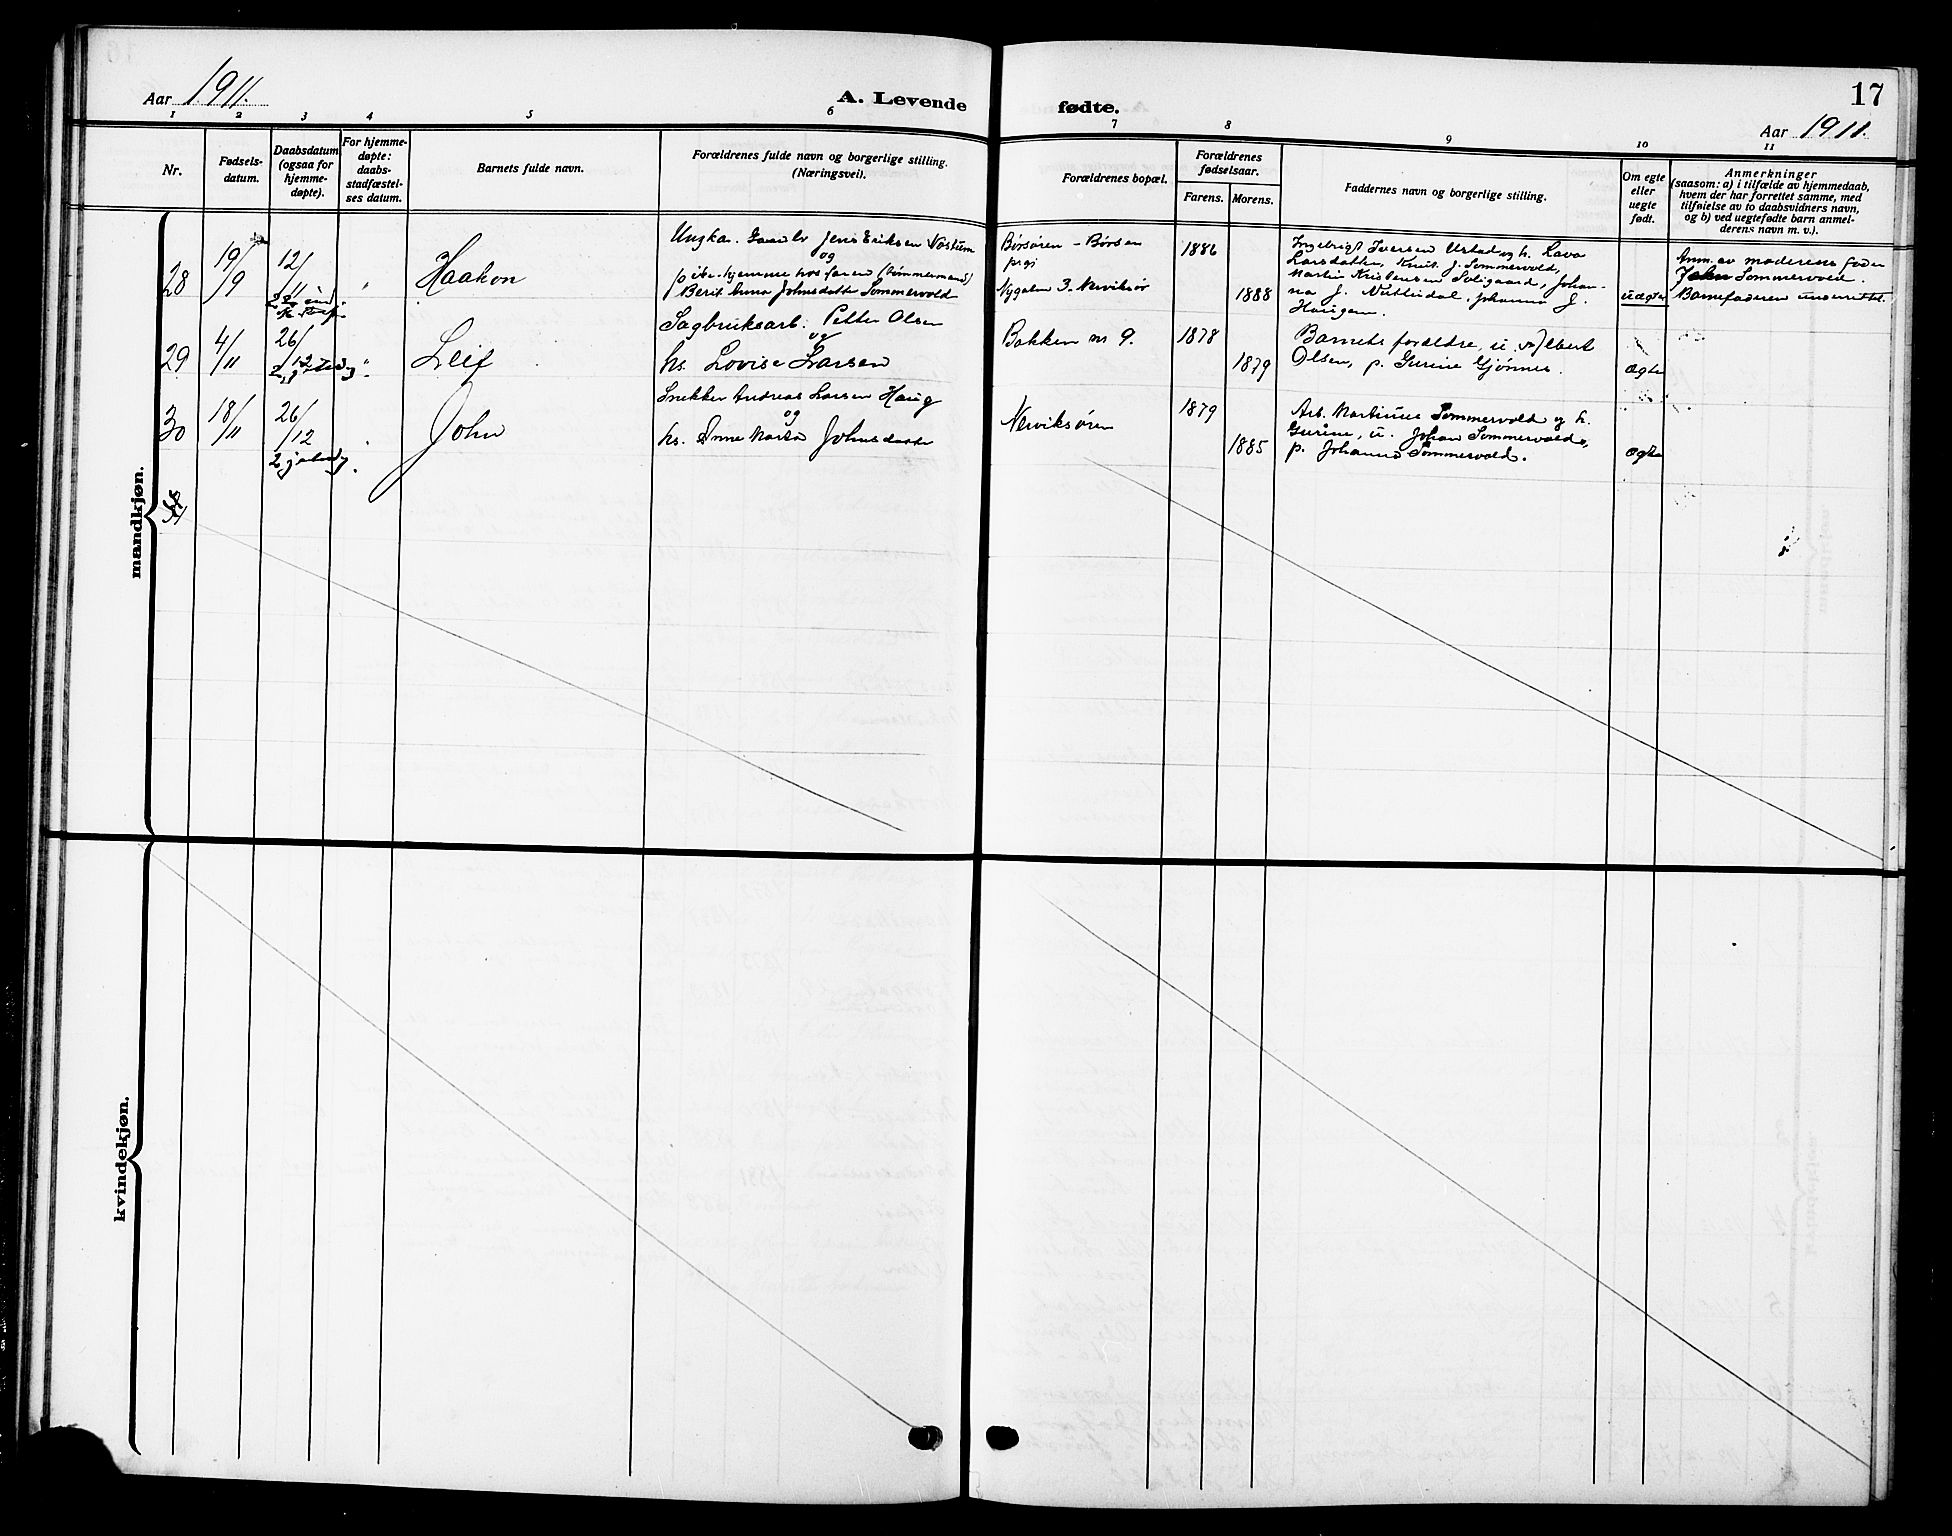 Aar 1911.
A. Levende fødte.
17
Aar 1911.
1 2 3 4 5 6 7 8 9 10 11
Nr.
Fødsels-
datum.
Daabsdatum
(ogsaa for
hjemme-
døpte).
For hjemme-
døpte:
daabs-
stadfæstel-
ses datum.
Barnets fulde navn.
Forældrenes fulde navn og borgerlige stilling.
(Næringsvei).
Forældrenes bopæl.
Forældrenes
fødselsaar.
Farens. Morens.
Faddernes navn og borgerlige stilling.
Om egte
eller
uegte
født.
Anmerkninger
(saasom: a) i tilfælde av hjemmedaab,
hvem der har forrettet samme, med
tilføielse av to daabsvidners navn,
og b) ved uegtefødte barn anmel-
derens navn m. v.).
mandkjøn.
28
19/9
12/11
"
Haakon
Ungka. Jens Eriksen Vostum
og
p. hjemme hos faren (tømmermand)
Berit Anna Johnsdatter Sommervold
Børsøren - Børsen
prgj
Nygaten 3. Nerviksør
1886
1888
Ingebrigt Iversen Ustad og h. Lava
Larsdatter, Knut J. Sommervold,
Martin Kristensen Soligaard, Johan-
na J. , Johanna J.
Haugen.
uægte
Anm. av moderens fader
John Sommervold.
Barnefaderen underrettet.
29
4/11
26/12
2 juledg.
"
Leif
Sagbruksarb. Petter Olsen
og
hs. Lovise Larsen
Bakken nr 9.
1878
1879
Barnets forældre, u. Albert
Olsen, p. Gurine Gjønnes.
ægte
30
18/11
26/12
2 juledg.
John
Snekker Andreas Larsen Haug
og
hs. Anne Marta Johnsdatter
Nerviksøren
1879
1885
Arb. Martinus Sommervold og h.
Gurine, u. Johan Sommervold,
p. Johanna Sommervold.
ægte
kvindekjøn.